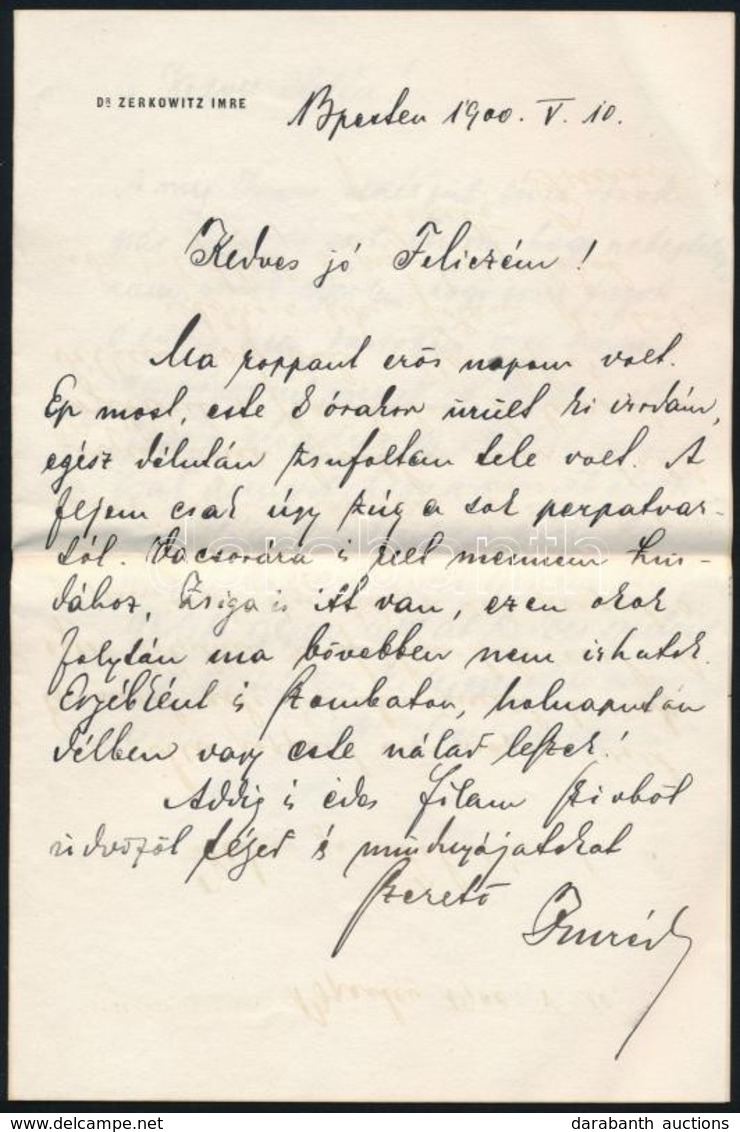 DR ZERKOWITZ IMRE
Bpesten 1900. V. 10.
Kedves jó Feliczém!
Ma roppant erős napom volt.
Ép most, este 8 órakor ürült ki irodám,
egész délután zsufoltan tele volt. A
fejem csak úgy zúg a sok perpatvar-
tól. Vacsorára is kell mennem Lin-
dához, Zsiga is itt van, ezen okok
folytán ma bővebben nem irhatok.
Egyébként is Szombaton, holnapután
délben vagy este nálad leszek!
Addig is édes filam szivből
üdvözöl téged és mindnyájatokat
szerető
Imréd
darabanth
darabanth auctions